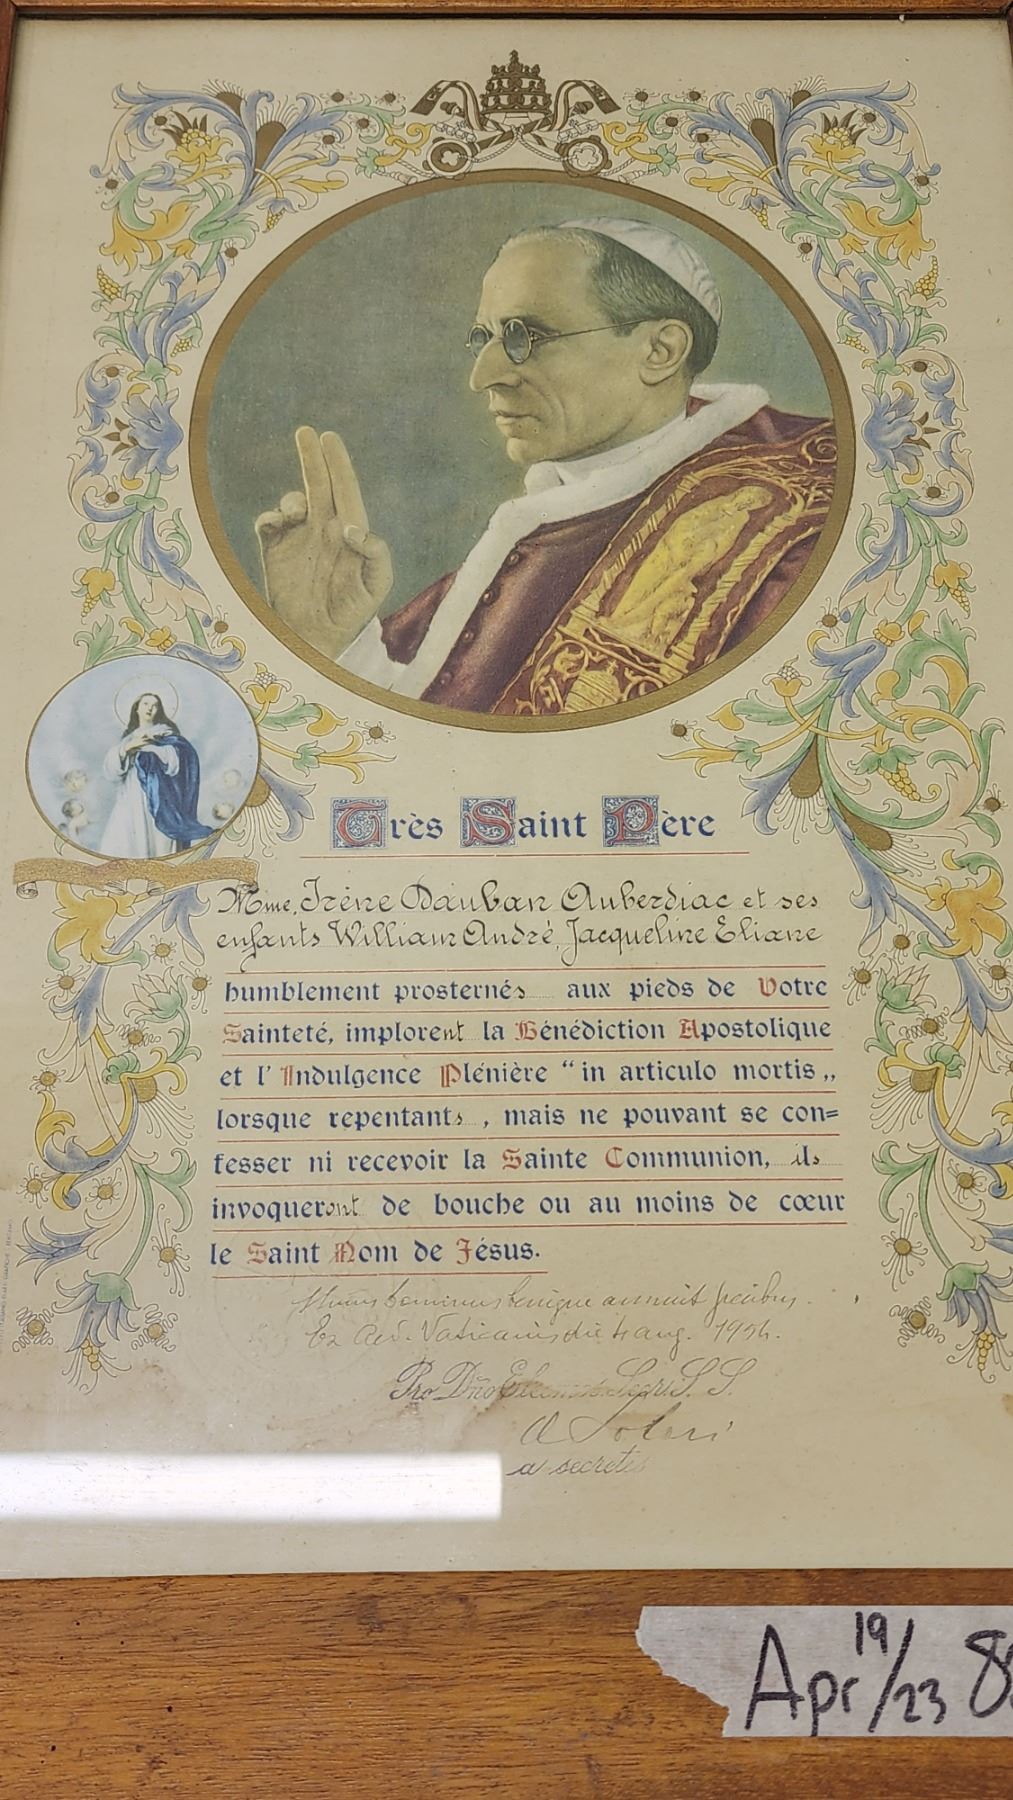 Très Saint Père
Mme. Irène Dauban Auberdiac et ses
enfants William André, Jacqueline Eliane
humblement prosternés aux pieds de Votre
Sainteté, implorent la Bénédiction Apostolique
et l'Indulgence Plénière “in articulo mortis„
lorsque repentants, mais ne pouvant se con=
fesser ni recevoir la Sainte Communion, ils
invoqueront de bouche ou au moins de cœur
le Saint Nom de Jésus.
benigne annuit precibus.
Ex Aed. Vaticanis die aug. 1954.
Pro Dño S. S.
a secretis
Apr 19/23